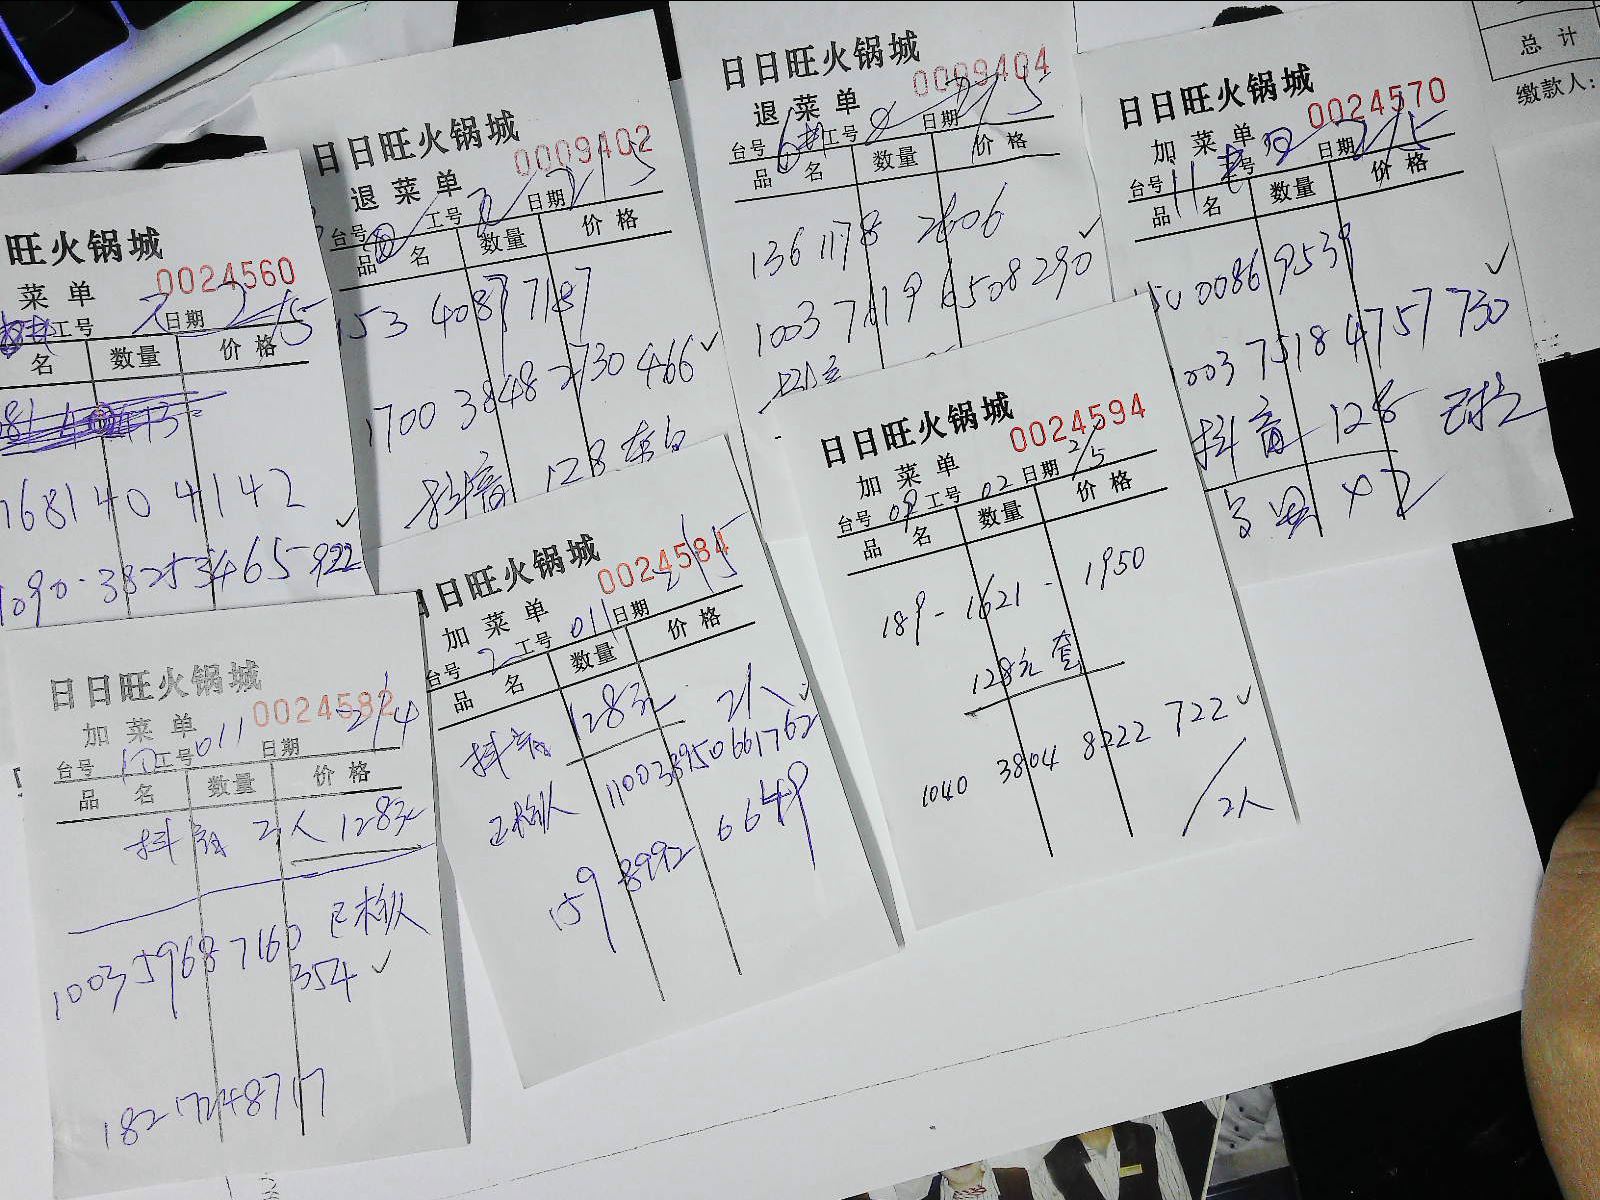 旺火锅城
0024560
菜单
工号 2 日期 2/5
名 数量 价格
7681404142
1090·3825346 5922
日日旺火锅城
0009402
退菜单
台号 工号 2 日期 2/5
品名 数量 价格
153 4087 7187
1700 3848 2730 466 ✓
抖音 128
日日旺火锅城
0009404
退菜单
台号 6 工号 日期 2/5
品名 数量 价格
136 1178 2606
1003 7419 6508 290 ✓
日日旺火锅城
0024570
加菜单
台号 11 工号 日期 2/5
品名 数量 价格
150 0086 9539
1003 7518 4757 730 ✓
抖音 128
X2
日日旺火锅城
0024582
加菜单
台号 工号 011 日期 2/4
品名 数量 价格
抖音 2人 128元
已核队
1003 5968 7160
354 ✓
18217248717
日日旺火锅城
0024584
加菜单
台号 2 工号 011 日期 2/5
品名 数量 价格
抖音 128元 2人 ✓
已核队 110038950661762
159 8992 6649
日日旺火锅城
0024594
加菜单
台号 09 工号 02 日期 2/5
品名 数量 价格
189-1621-1950
128元套
1040 3804 8222 722 ✓
2人
总计
缴款人: